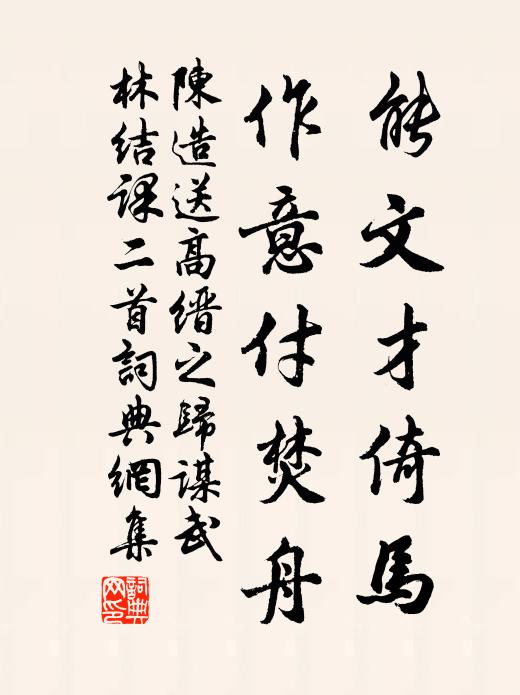 能文才倚馬
作意付焚舟
陳造送高縉之歸謀武
林結課二首詞典網集
詞典網印